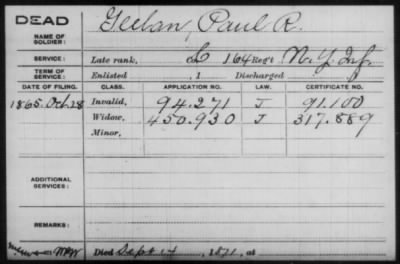 DEAD
NAME OF SOLDIER: Geelan, Paul R.
SERVICE: Late rank, Co 164 Reg't N. Y. Inf.
TERM OF SERVICE: Enlisted , 1 Discharged
DATE OF FILING. CLASS. APPLICATION NO. LAW. CERTIFICATE NO.
1865. Oct. 28 Invalid, 94.271 J 91.100
Widow, 450.930 J 317.889
Minor,
ADDITIONAL SERVICES:
REMARKS:
Died Sept 14, 1871, at